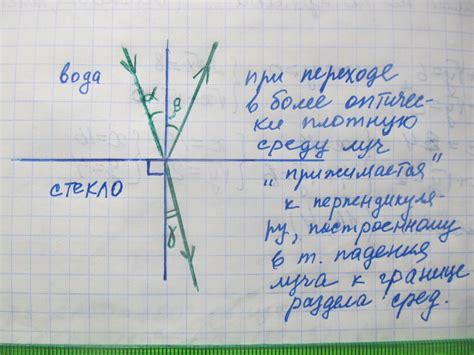 вода
α
β
стекло
γ
при переходе
в более оптичес-
ки плотную
среду луч
"прижимается"
к перпендикуля-
ру, построенному
в т. падения
луча к границе
раздела сред.